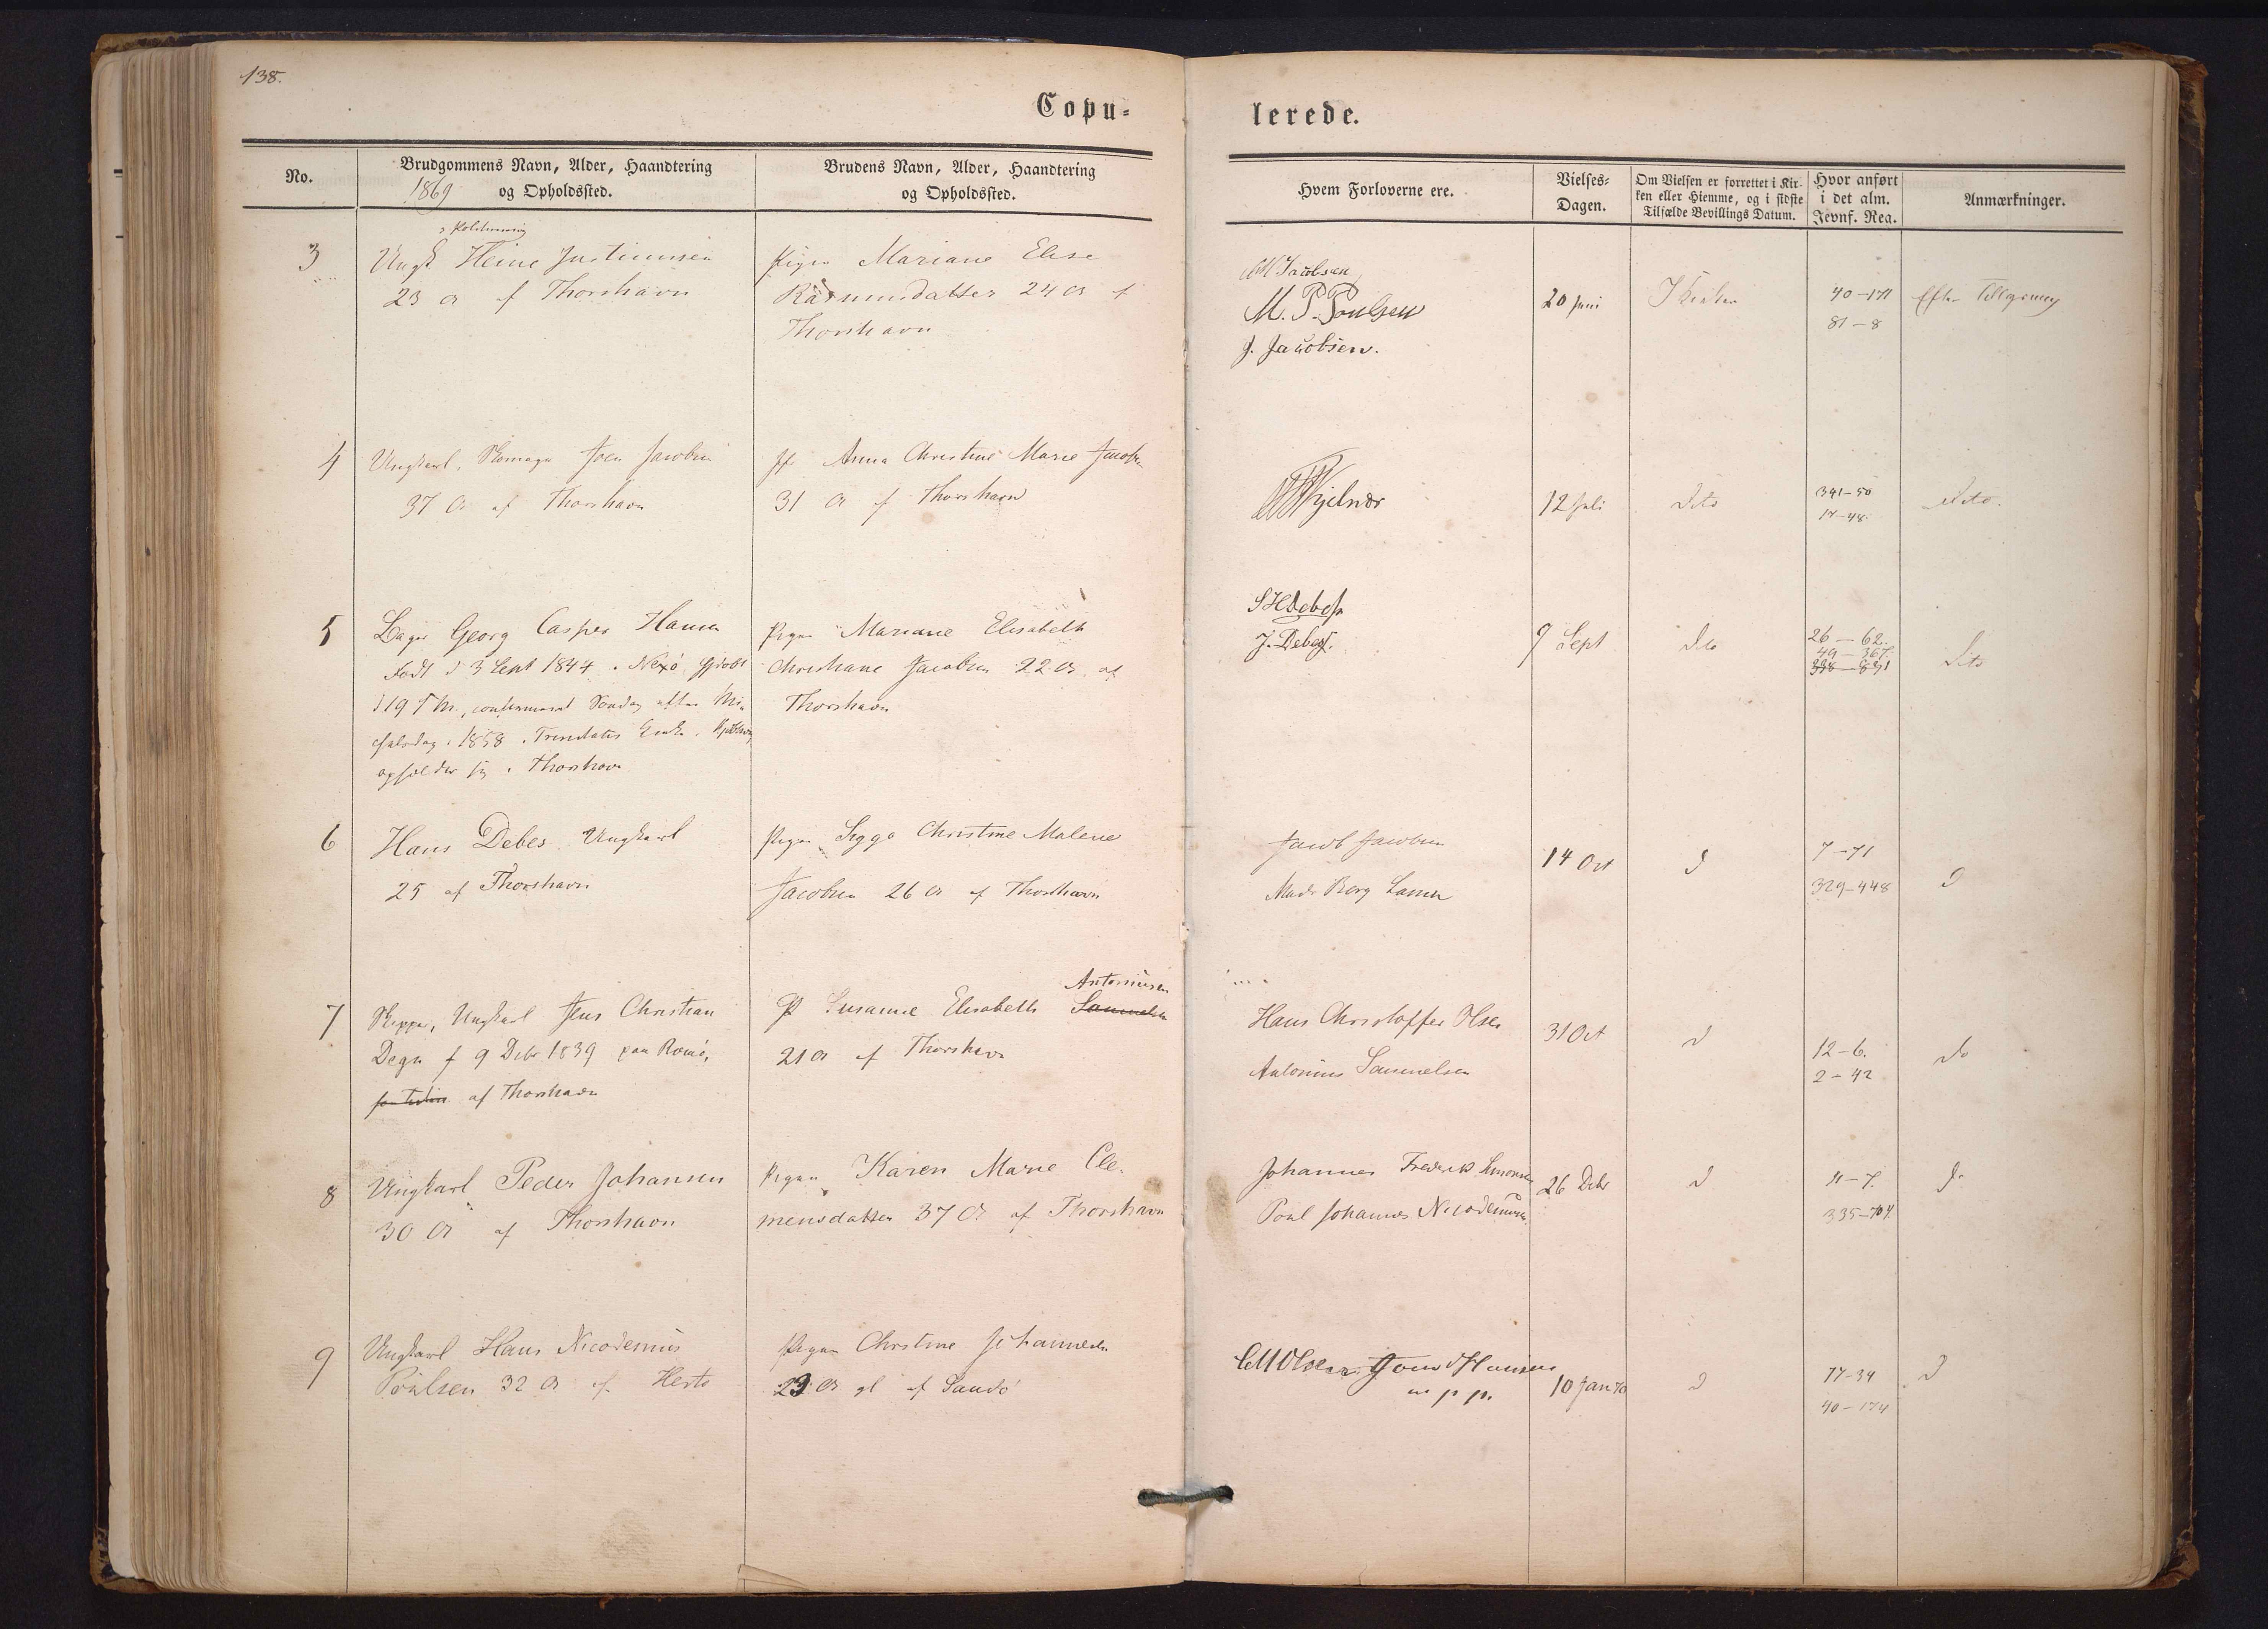 138.
Copu-
lerede.
No.
Brudgommens Navn, Alder, Haandtering
1869 og Opholdssted.
Brudens Navn, Alder, Haandtering
og Opholdssted.
Hvem Forloverne ere.
Vielses-
Dagen.
Om Vielsen er forrettet i Kir-
ken eller Hiemme, og i sidste
Tilfælde Bevillings Datum.
Hvor anført
i det alm.
Jevnf. Reg.
Anmærkninger.
3
Ungk Heine Justinussen
23 a f Thorshavn
Pigen Mariane Elise
Rasmusdatter 24 a f
Thorshavn
M Jacobsen
M. P. Poulsen
J. Jacobsen.
20 Juni
I Kirken
40-171
81-8
Efter
4
Ungkarl, Skomager Joen Jacobsen
37 a af Thorshavn
Anna Christine Marie Jacobsen
31 a f Thorshavn
12 Juli
Dito
341-50
17-48.
Dito.
5
Bager Georg Casper Hansen
Født d 3 Sept 1844 i Nexö
Søndag efter Mi-
chalsdag i 1858 i Trinitatis
opholder sig i Thorshavn
Pigen Mariane Elisabeth
Christiane Jacobsen 22 a. af
Thorshavn
J. Debes.
9 Sept
Dito
26-62.
49-367.
338-831
Dito
6
Hans Debes Ungkarl
25 af Thorshavn
Pigen Sigga Christine Malene
Jacobsen 26 a f Thorshavn
Jacob Jacobsen
Mads Berg
14 Oct
d
7-71
329-448
d
7
Skipper, Ungkarl Jens Christian
Degn f 9 Debr 1839 paa Romö,
af Thorshavn
Antoniusen
P Susanne Elisabeth Samuelsen
21 a af Thorshavn
Hans Christoffer Olsen
Antonius Samuelsen
31 Oct
d
12-6.
2-42
do
8
Ungkarl Peder Johansen
30 a af Thorshavn
Pigen Karen Marie Cle-
mensdatter 37 a af Thorshavn
Johannes Frederik Simonsen
Poul Johannes Nicodemusen
26 Debr
d
11-7.
335-704.
do
9
Ungkarl Hans Nicodemus
Poulsen 32 a f Hesto
Pigen Christine Johannesen
23 a gl f Sandö
Hansen
m p p.
10 Jan 70
d
77-34
40-174
d